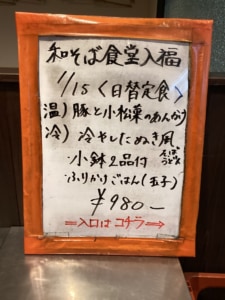 和そば食堂入福
1/15〈日替定食〉
温)豚と小松菜のあんかけ
冷)冷やしたぬき風、
小鉢2品付
ふりかけごはん(玉子)
¥980-
=入口はコチラ⇒